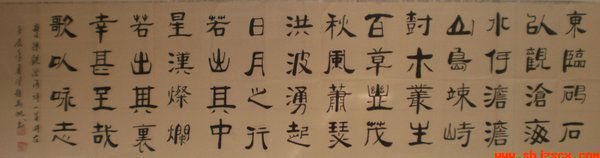 東臨碣石
以觀滄海
水何澹澹
山島竦峙
樹木叢生
百草豐茂
秋風蕭瑟
洪波湧起
日月之行
若出其中
星漢燦爛
若出其裏
幸甚至哉
歌以咏志
曹操觀滄海詩一首